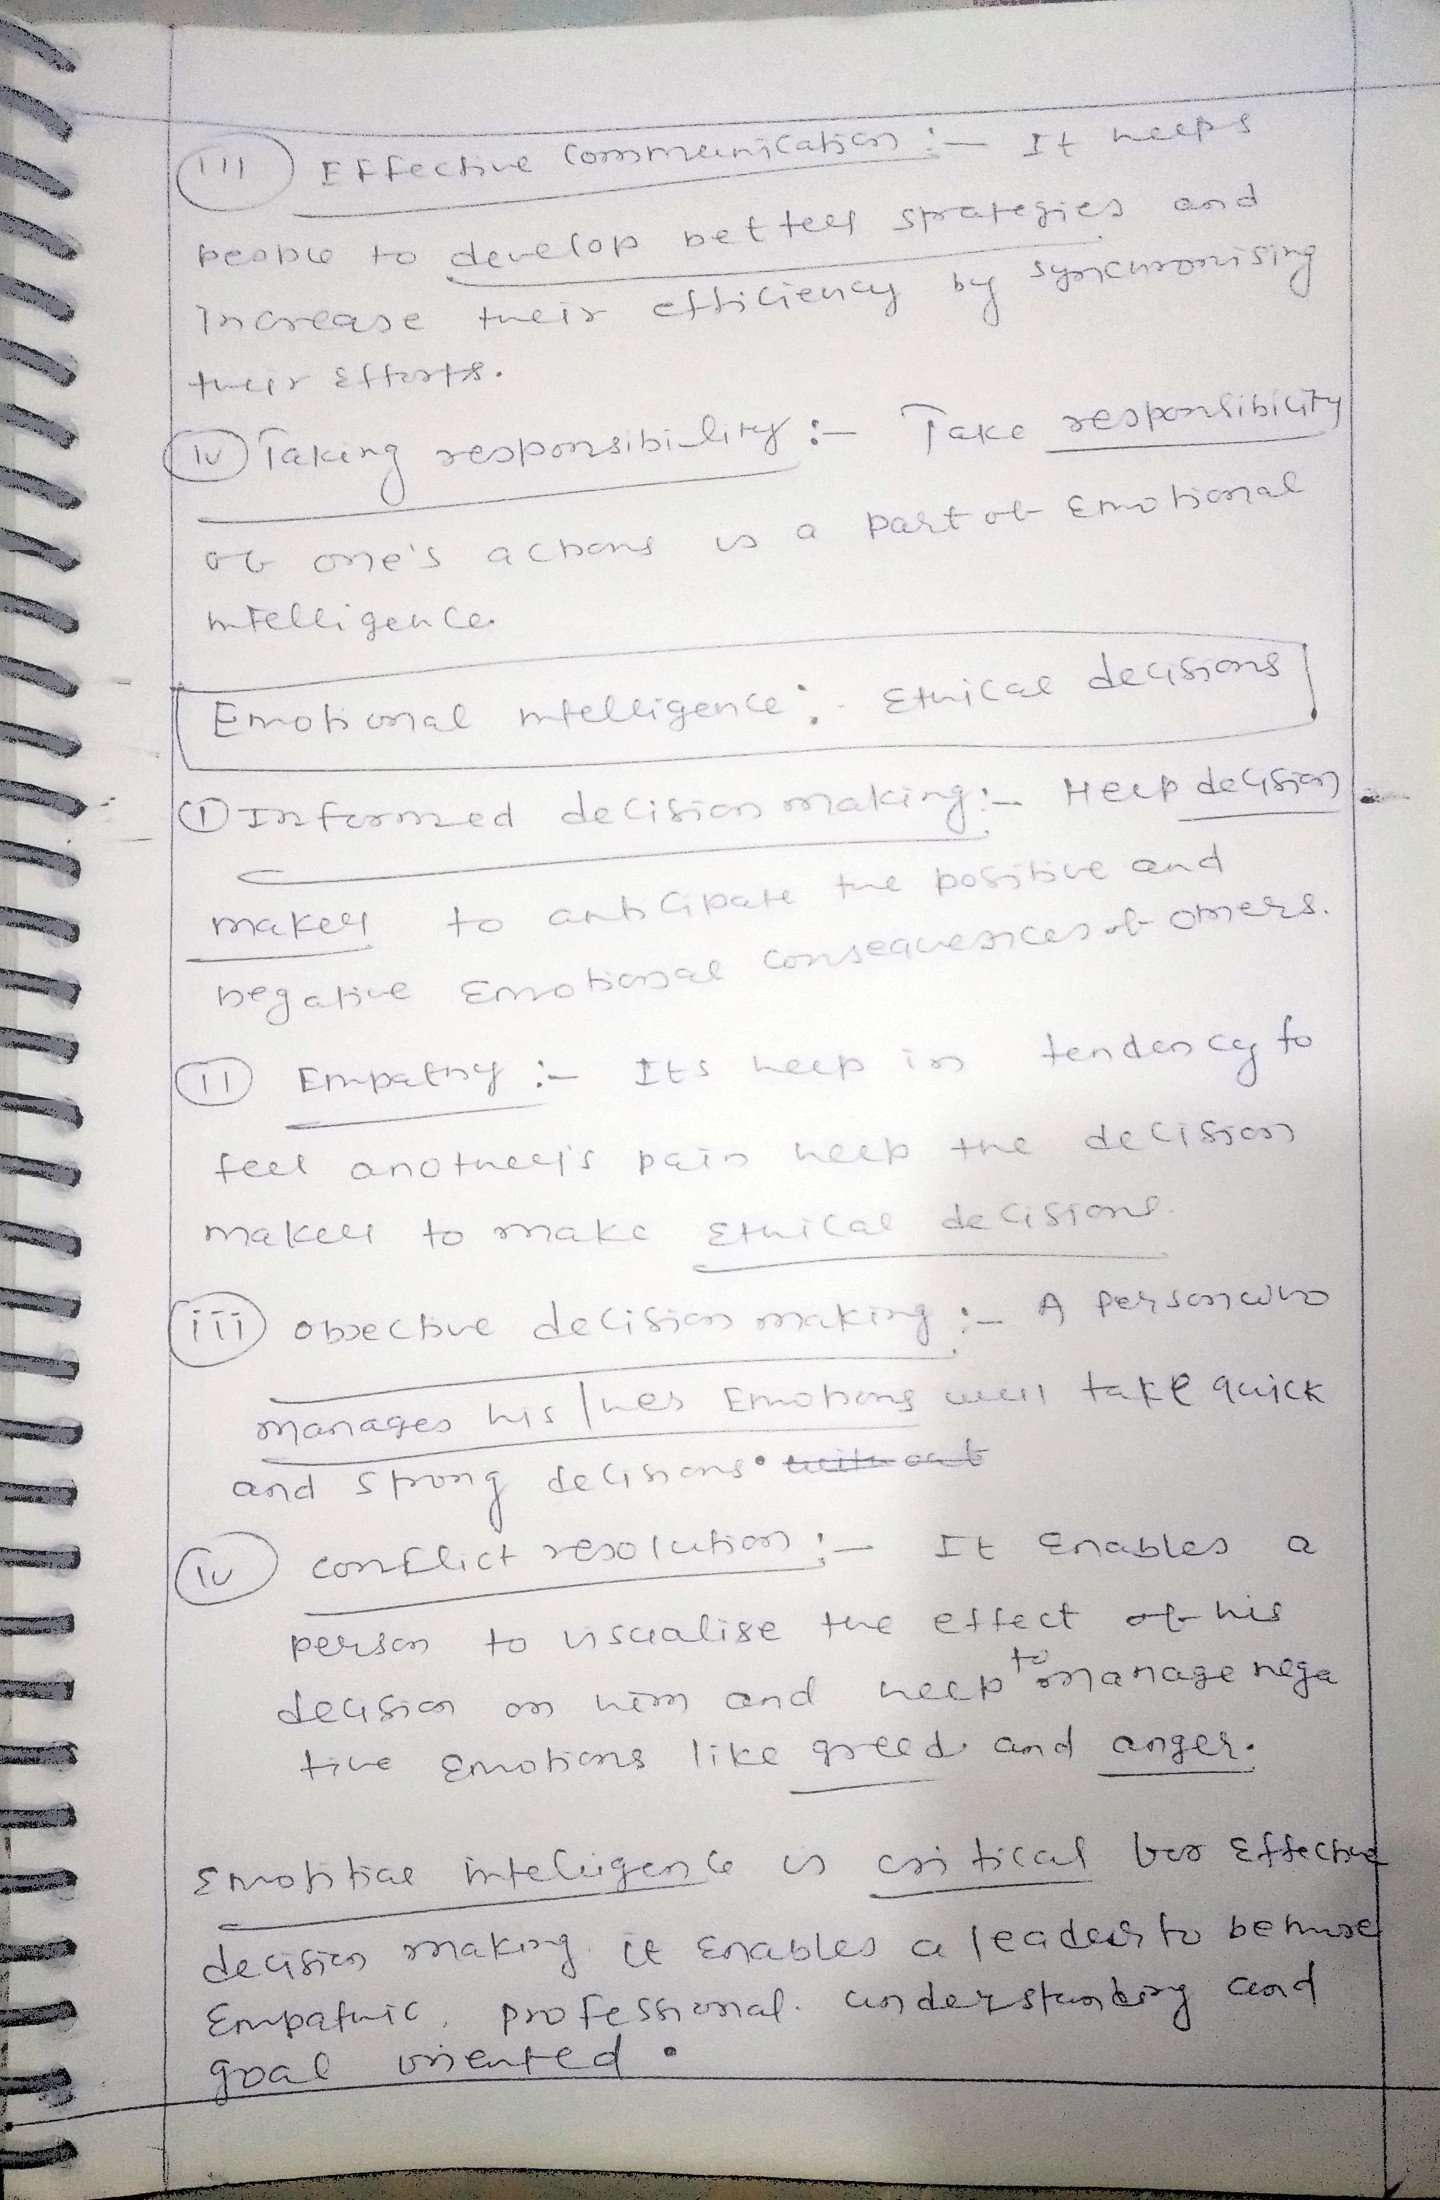 (iii) Effective Communication :- It helps
people to develop better strategies and
Increase their efficiency by synchronising
their Efforts.
(iv) Taking responsibility :- Take responsibility
of one's actions is a part of Emotional
intelligence.
Emotional intelligence : Ethical decisions
(i) Informed decision making :- Help decision
maker to anticipate the positive and
negative Emotional consequences of others.
(ii) Empathy :- Its help in tendency to
feel another's pain help the decision
maker to make Ethical decisions.
(iii) Objective decision making :- A person who
manages his/her Emotions will take quick
and strong decisions. without
(iv) conflict resolution :- It Enables a
person to visualise the effect of his
decision on him and help to manage nega
tive Emotions like greed and anger.
Emotital intelligence is critical for Effective
decision making. it Enables a leader to be more
Empathic, professional. understanding and
goal oriented.